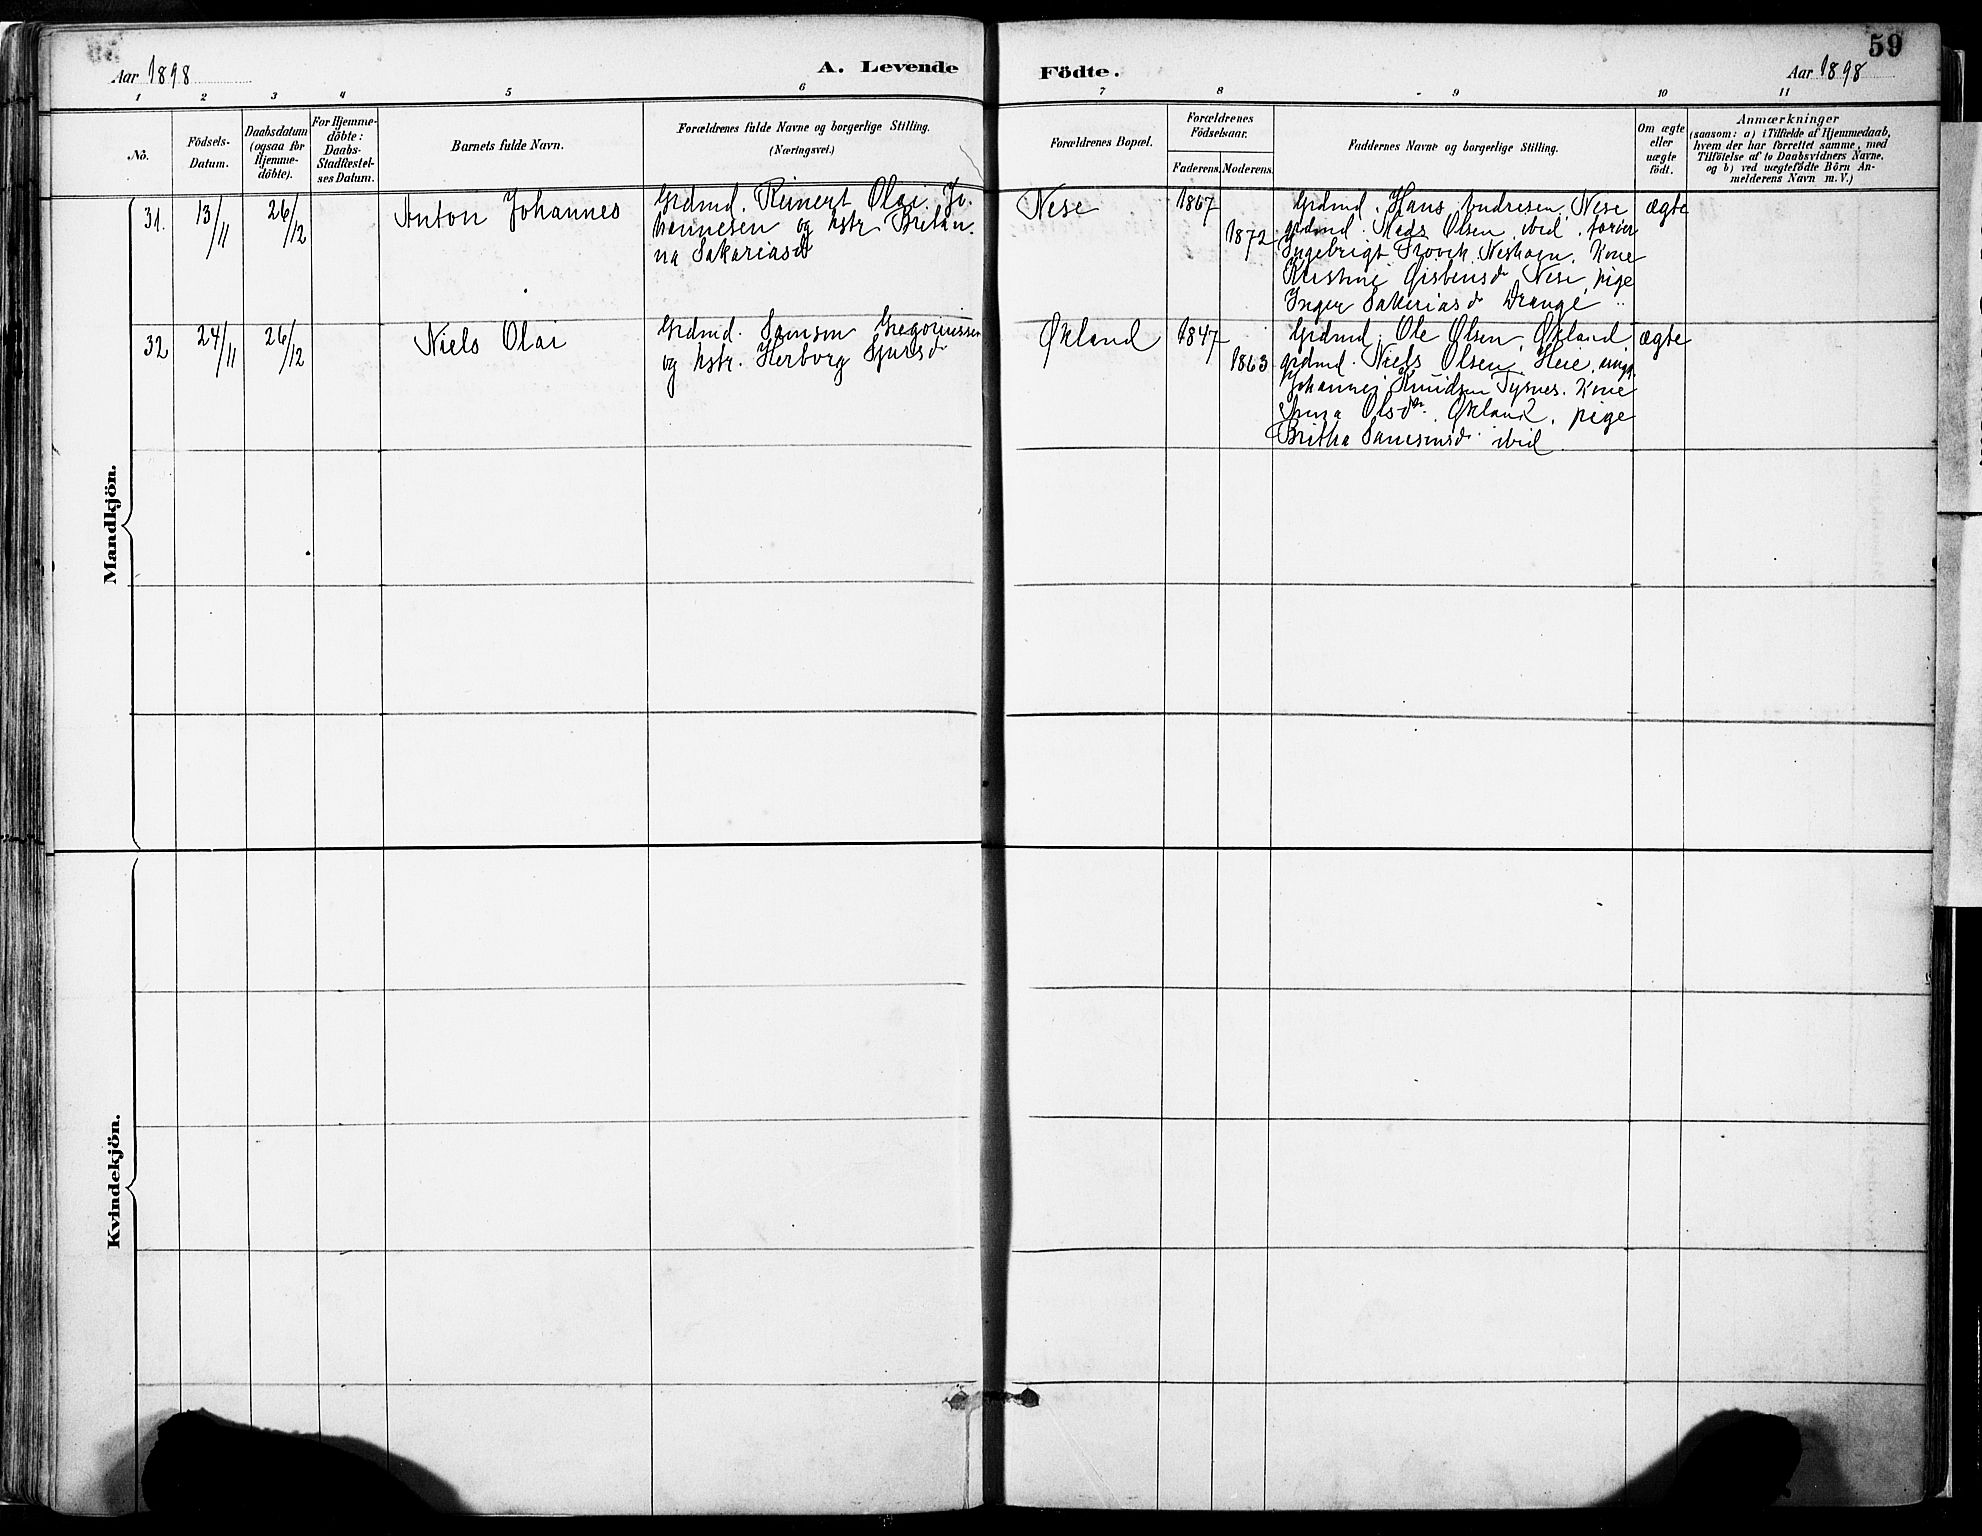 59
Aar 1898
A. Levende Födte.
Aar 1898
1 2 3 4 5 6 7 8 9 10 11
No.
Födsels-
Datum.
Daabsdatum
(ogsaa for
Hjemme-
döbte).
For Hjemme-
döbte:
Daabs-
Stadfæstel-
ses Datum.
Barnets fulde Navn.
Forældrenes fulde Navne og borgerlige Stilling.
(Næringsvei.)
Forældrenes Bopæl.
Forældrenes
Födselsaar.
Faderens. Moderens.
Faddernes Navne og borgerlige Stilling.
Om ægte
eller
uægte
födt.
Anmærkninger
(saasom: a) i Tilfælde af Hjemmedaab,
hvem der har forrettet samme, med
Tilföielse af to Daabsvidners Navne,
og b) ved uægtefödte Börn An-
melderens Navn m. V.)
Mandkjön.
31. 13/11 26/12
Anton Johannes
Grdmd. Reinert Olai Jo-
hannesen og hstr. Britan-
na Sakariasd
Nese
1867
1872
Grdmd. Hans Andresen, Nese
grdmd. Mads Olsen ibid.
Ingebrigt Neshagen. Kone
Kristine Nese, pige
Inger Sakariasd Drange
ægte
32 24/11 26/12
Niels Olai
Grdmd. Samson Gregoriussen
og hstr. Herborg Sjursd
Økland
1847
1863
Grdmd. Ole Olsen, Økland
grdmd. Niels Olsen, Heie, ungk.
Johannes Knudsen Tysnes. Kone
Anna Olsdr. Økland, pige
Britha Samsonsd. ibid.
ægte
Kvindekjön.